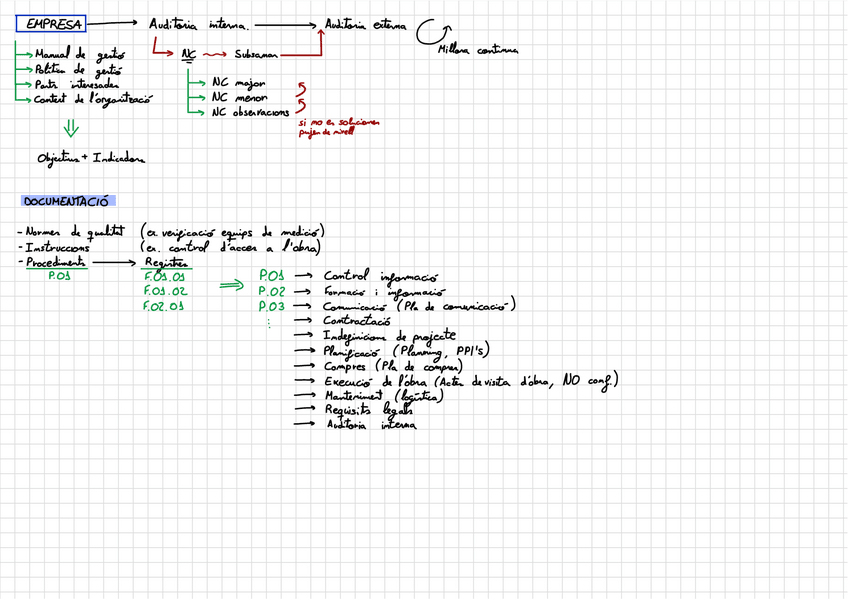 EMPRESA → Auditoria interna. → Auditoria externa
Millora contínua
→ Manual de gestió
→ Política de gestió
→ Parts interesades
→ Context de l'organització
NC → Subsanar
→ NC major
→ NC menor
→ NC observacions
si no es solucionen
pugen de nivell
Objectius + Indicadors
DOCUMENTACIÓ
- Normes de qualitat (ex. verificació equips de medició)
- Instruccions (ex. control d'acces a l'obra)
- Procediments → Registres
P.01
F.01.01
F.01.02
F.02.01
⇒
P.01 → Control informació
P.02 → Formació i informació
P.03 → Comunicació (Pla de comunicació)
⋮ → Contractació
→ Indefinicions de projecte
→ Planificació (Planning, PPI's)
→ Compres (Pla de compres)
→ Execució de l'obra (Actes de visita d'obra, NO conf.)
→ Manteniment (logística)
→ Requisits legals
→ Auditoria interna